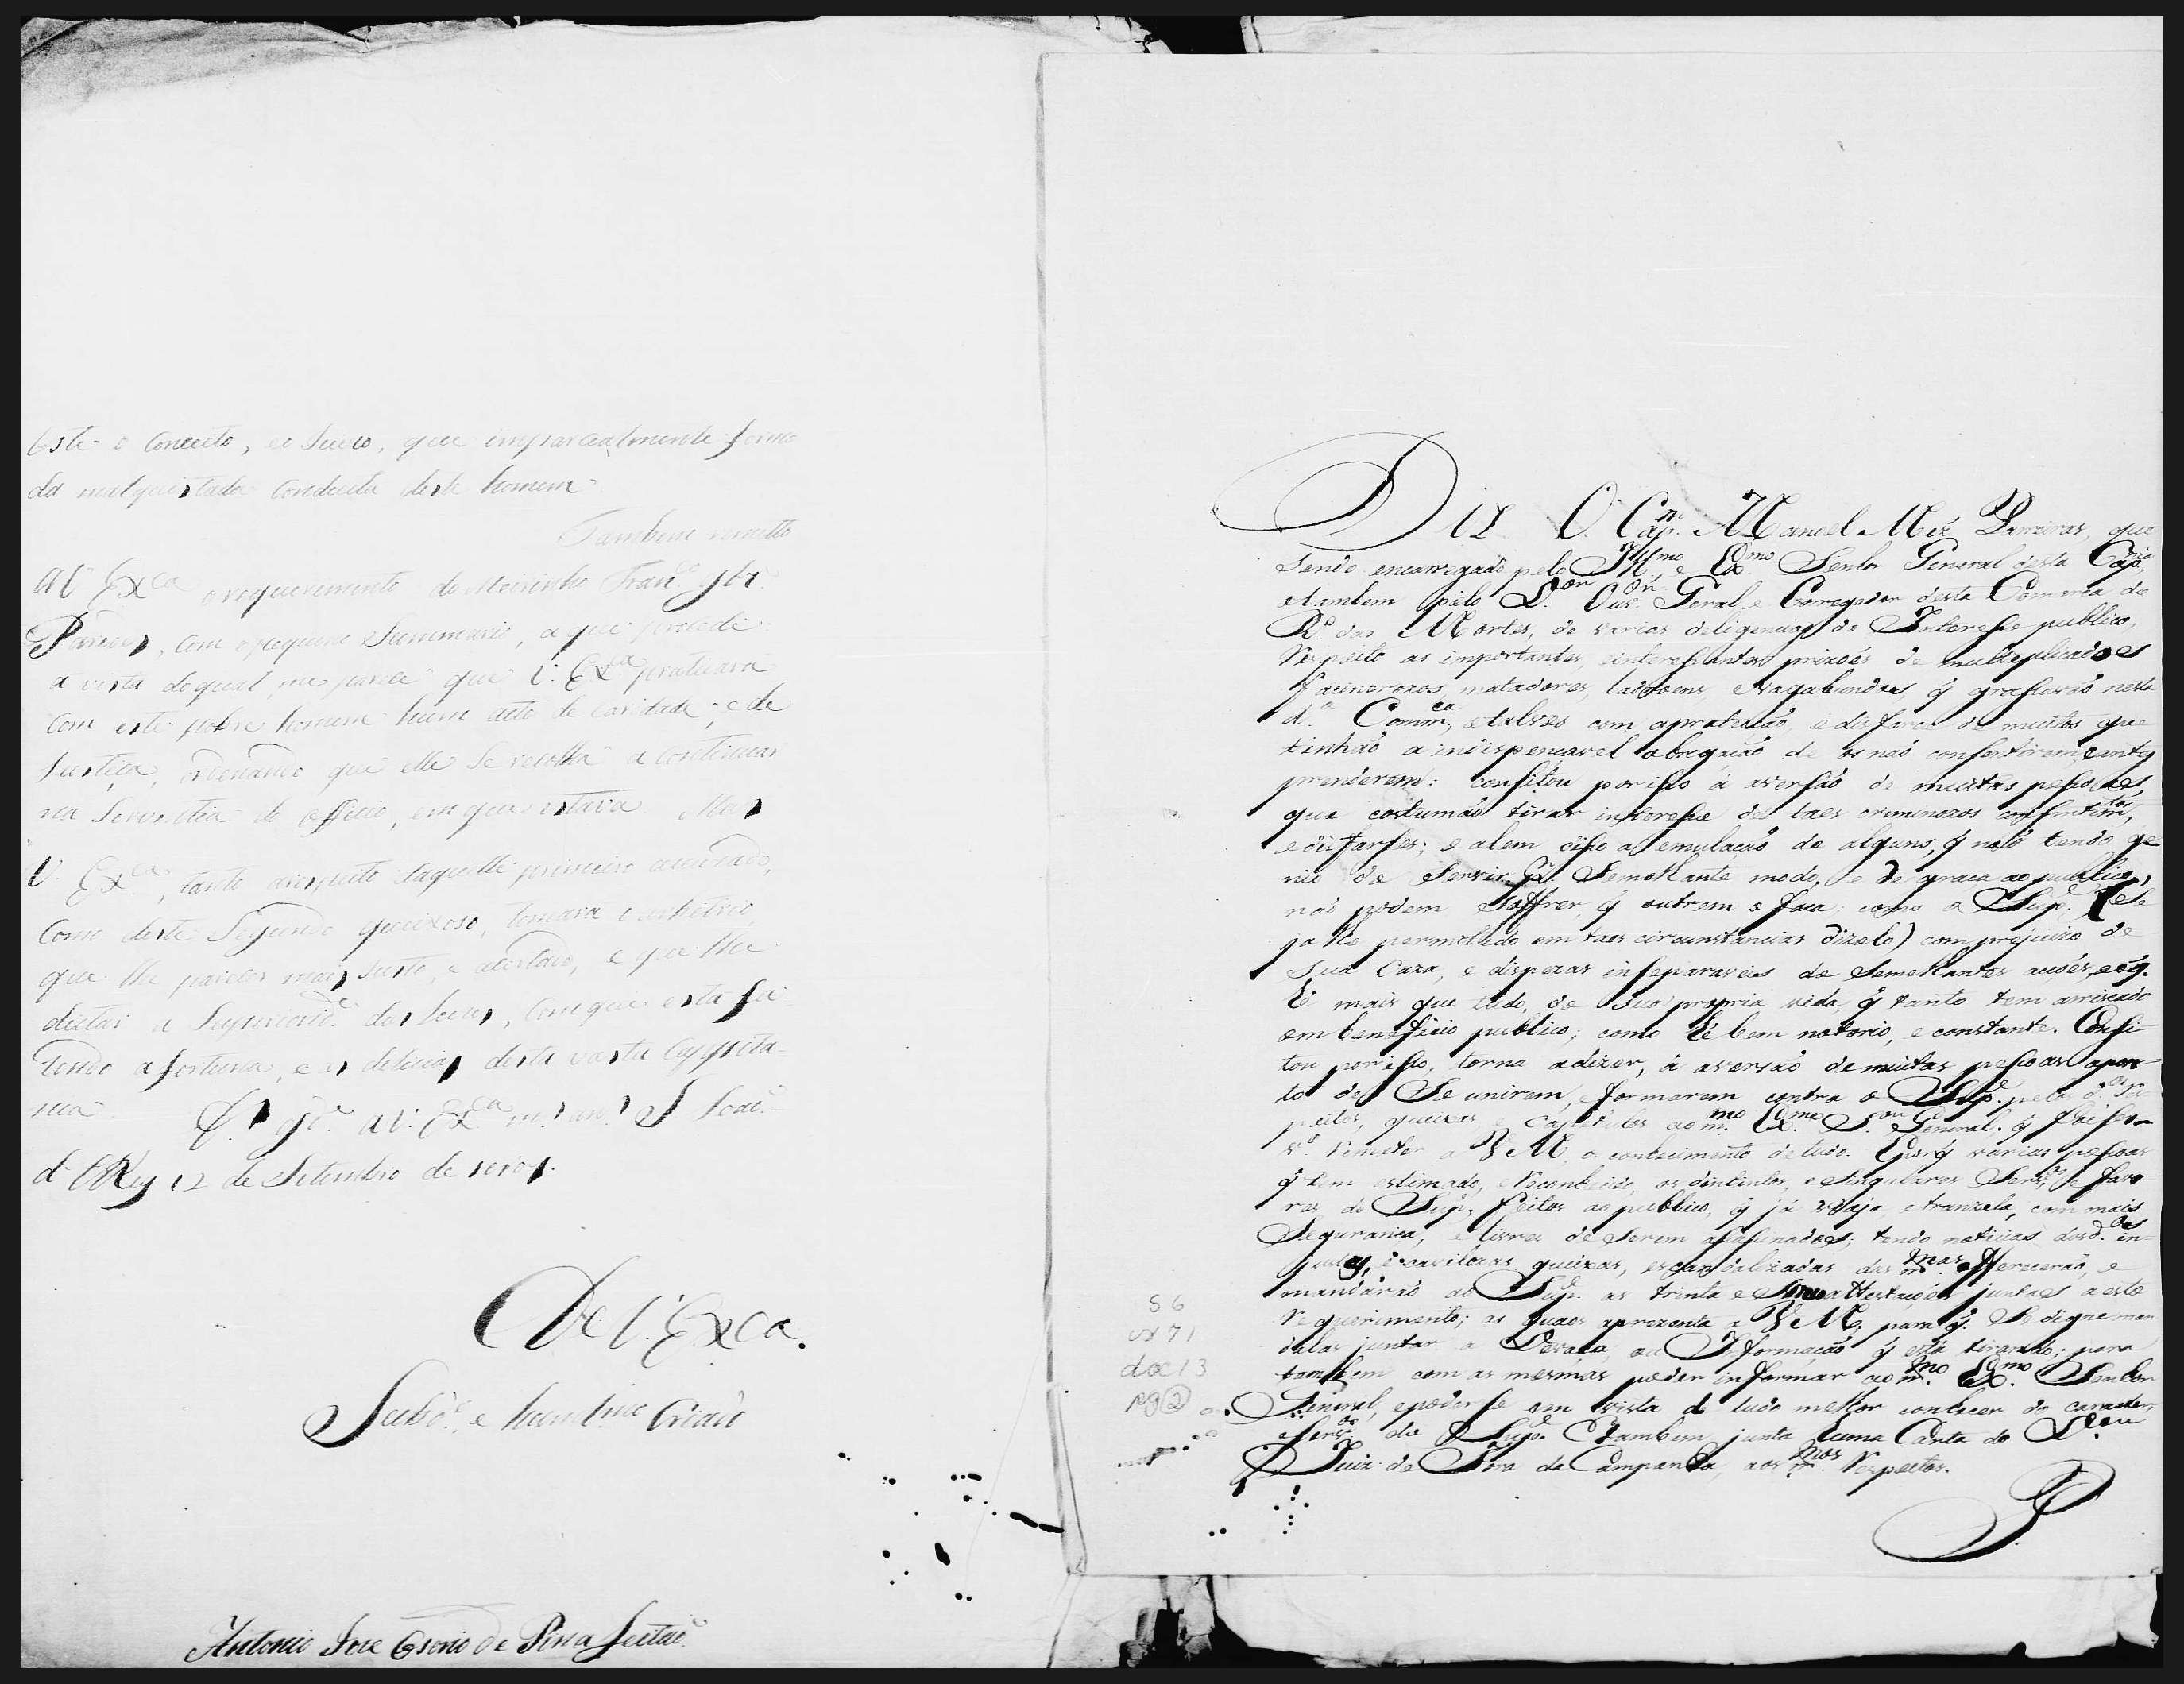 Este o Conceito, eo Juizo, que imparcialmente formo
da malquistada Conducta deste homem.
Tambem remetto
A V. Exca o requerimento do Meirinho Franco
Paredes, com o pequeno Summario, a que procedi
a vista do qual me parece que V. Exa praticará
com este pobre homem hum acto de Caridade, e de
Justiça, ordenando que elle Se recolha a continuar
na Serventia do Officio, em que estava. Mas
V. Exca, tanto arespeito daquelle primeiro
Como deste Segundo queixoso, tomará o arbitrio
que lhe parecer mais justo, e acertado, e que lhe
dictar a Superiorid.e das Luzes, com que está fa-
zendo a fortuna, e as delicias desta vasta Cappita-
nia D.s g.de a V. Exca m.s an.s S. João
d'ElRey 12 de Setembro de
De V. Exca.
Subd.o e humilimo Criado
Antonio Joze Ozorio de Pina Leitão
Diz O Cap.m Manoel Miz Parreiras, que
Sendo encarregado pelo Ill.mo, e Ex.mo Senhor General desta Cap.nia
etambem pelo D.or Ouv.or Geral, e Corregedor desta Comarca do
R.o das Mortes, de varias deligencias de Interesse publico,
Respeito as importantes, einteressantes prizoẽs de multeplicados
facinorozos, matadores, ladroens evagabundos q̃ grassavaõ nesta
d.a Comm.ca, etalves com aprotecçaõ, e disfarce de muitos que
tinhaõ a indispençavel obrigaçaõ de os naõ consentirem, eantes
prenderem: consitou porisso á aversaõ de muitas pessoas,
que costumaõ tirar interesse de taes criminozos consentim.tos,
edisfarses; e alem disso a emulaçaõ de alguns, q̃ naõ tendo ge-
nio de Servir P.r Semelhante modo, e de graca ao publico,
naõ podem Soffrer q̃ outrem o faca: como o Sup.e (Se
ja lhe permetido em taes circunstancias dizelo) com prejuizo de
Sua Caza, e dispezas inseparaveis de Semelhantes acçoẽs, eoq̃.
hé mais que tudo, de Sua propria vida, q̃ tanto tem arriscado
em beneficio publico; como hé bem notorio, e constante. Consi-
tou porisso, torna adizer, á aversaõ de muitas pessoas apon-
to de Se unirem, e formarem contra o Sup.e pelos d.os res-
peitos, queixas e Capitulos ao m.mo Ex.mo S.or General. q̃ foi ser-
v.o remeter a V M. o conhecimento de tudo. Eporq̃ varias pessoas
q̃ tem estimado, eReconhecido, os distintos, eSingulares Serv.os, e favo
res do Sup.e feitos ao publico, q̃ já viaja, etranzita, com mais
Seguranca, e livres de Serem assasinados; tendo noticias das d.as in-
justas, e cavilozas queixas, escandalizadas das m.mas offereceraõ, e
mandaraõ ao Sup.e as trinta e Attestaçoẽs juntas aeste
Requerimento; as quaes aprezenta a V M. para q̃ Se digne man-
dalas juntar a Devaça, ou Informaçaõ q̃ está tirando; para
tambem com as mesmas poder informar ao m.mo Ex.mo Senhor
General, epoderse em vista de tudo melhor conhecer do caracter,
eServ.os do Sup.e Etambem junta huma Carta do D.or
Juiz de Fora da Campanha, aos m.mos Respeitos.
P
56
cx 71
doc 13
pg 2